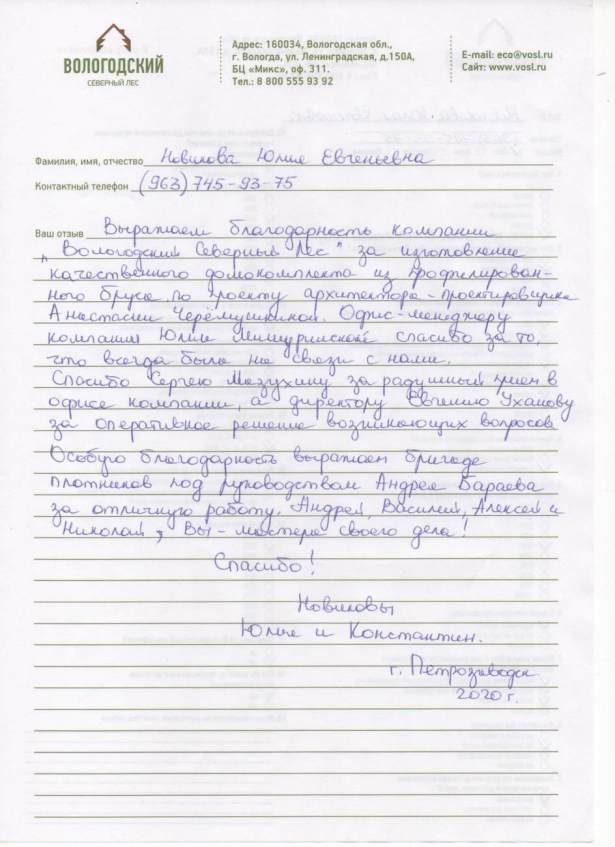 ВОЛОГОДСКИЙ
СЕВЕРНЫЙ ЛЕС
Адрес: 160034, Вологодская обл.,
г. Вологда, ул. Ленинградская, д.150А,
БЦ «Микс», оф. 311.
Тел.: 8 800 555 93 92
E-mail: eco@vosl.ru
Сайт: www.vosl.ru
Фамилия, имя, отчество Новикова Юлия Евгеньевна
Контактный телефон (963) 745-93-75
Ваш отзыв Выражаем благодарность компании
„Вологодский Северный Лес" за изготовление
качественного домокомплекта из профилирован-
ного бруса по проекту архитектора-проектировщика
Анастасии Черёмушкиной. Офис-менеджеру
компании Юлии спасибо за то,
что всегда была на связи с нами.
Спасибо Сергею Мазухину за радушный прием в
офисе компании, а директору Евгению Уханову
за оперативное решение возникающих вопросов
Особую благодарность выражаем бригаде
плотников под руководством Андрея Бараева
за отличную работу. Андрей, Василий, Алексей и
Николай, Вы - мастера своего дела!
Спасибо!
Новиковы
Юлия и Константин.
г. Петрозаводск
2020 г.